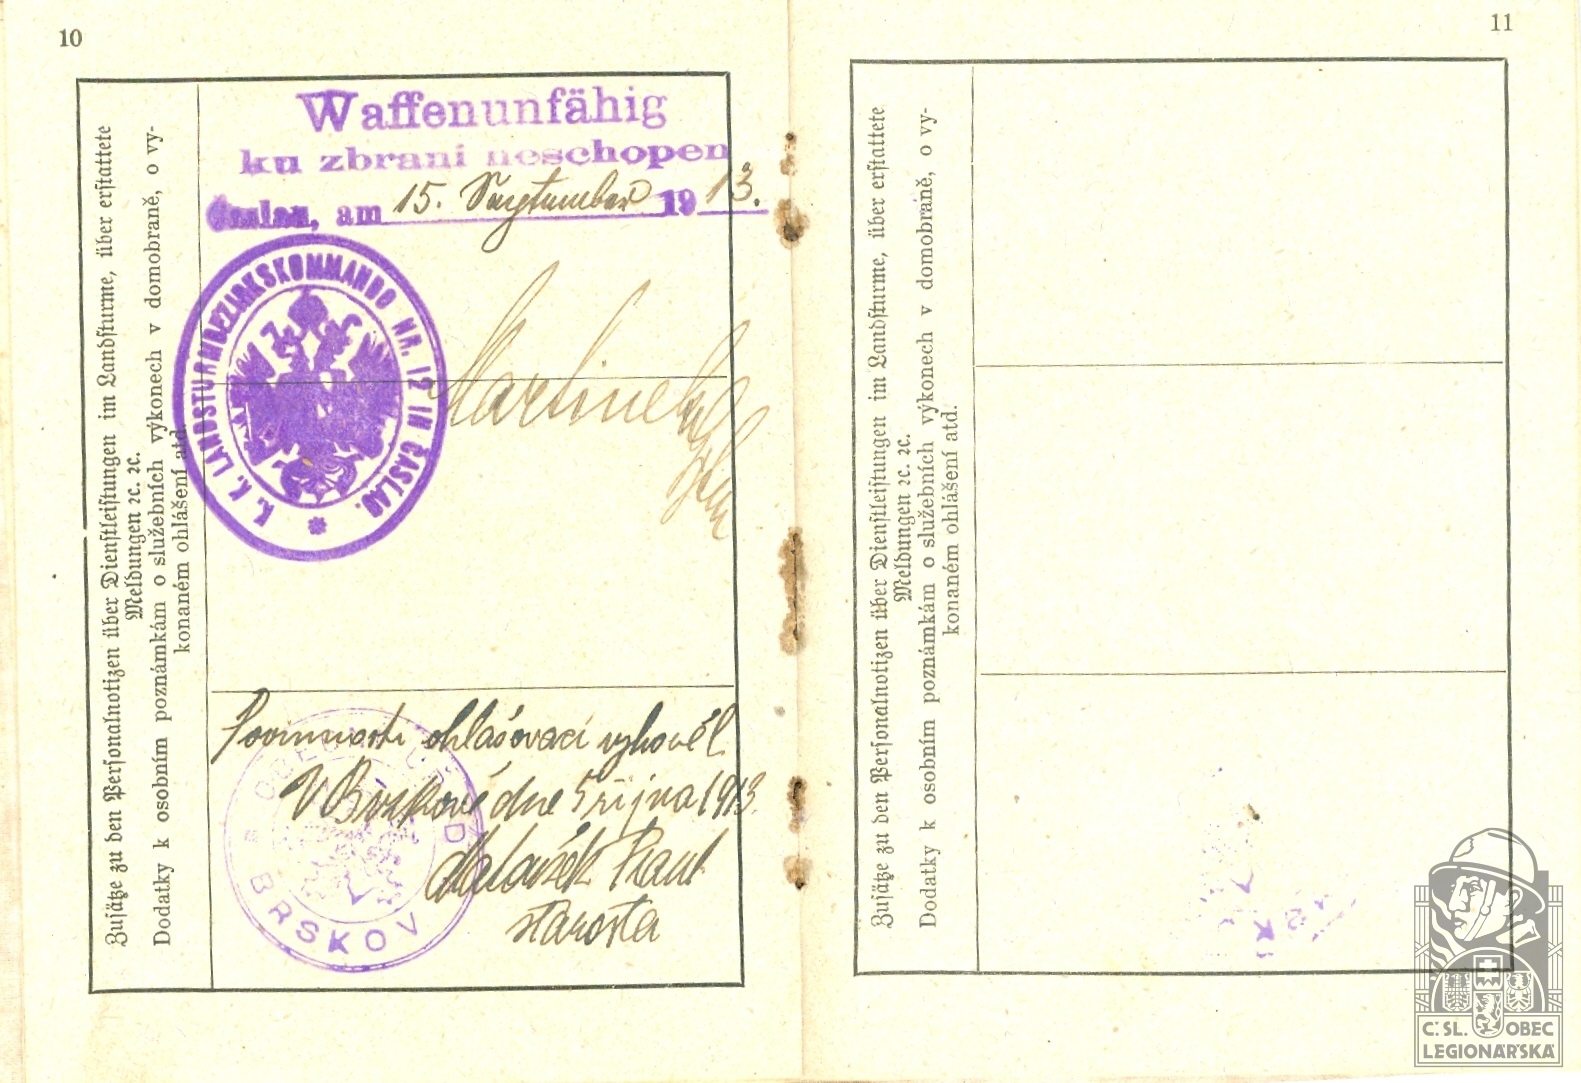 10
Zusätze zu den Personalnotizen über Dienstleistungen im Landsturme, über erstattete
Meldungen ꝛc. ꝛc.
Dodatky k osobním poznámkám o služebních výkonech v domobraně, o vy-
konaném ohlášení atd.
Waffenunfähig
ku zbrani neschopen
Časlau, am 15. September 1913.
K. K. LANDSTURMBEZIRKSKOMMANDO NR. 12 IN ČASLAU.
Martinek
Povinnosti ohlašovací vyhověl
V Brskově dne 5 října 1913.
starosta
OBECNÍ ÚŘAD
BRSKOV
11
Zusätze zu den Personalnotizen über Dienstleistungen im Landsturme, über erstattete
Meldungen ꝛc. ꝛc.
Dodatky k osobním poznámkám o služebních výkonech v domobraně, o vy-
konaném ohlášení atd.
Č. SL. OBEC
LEGIONÁŘSKÁ